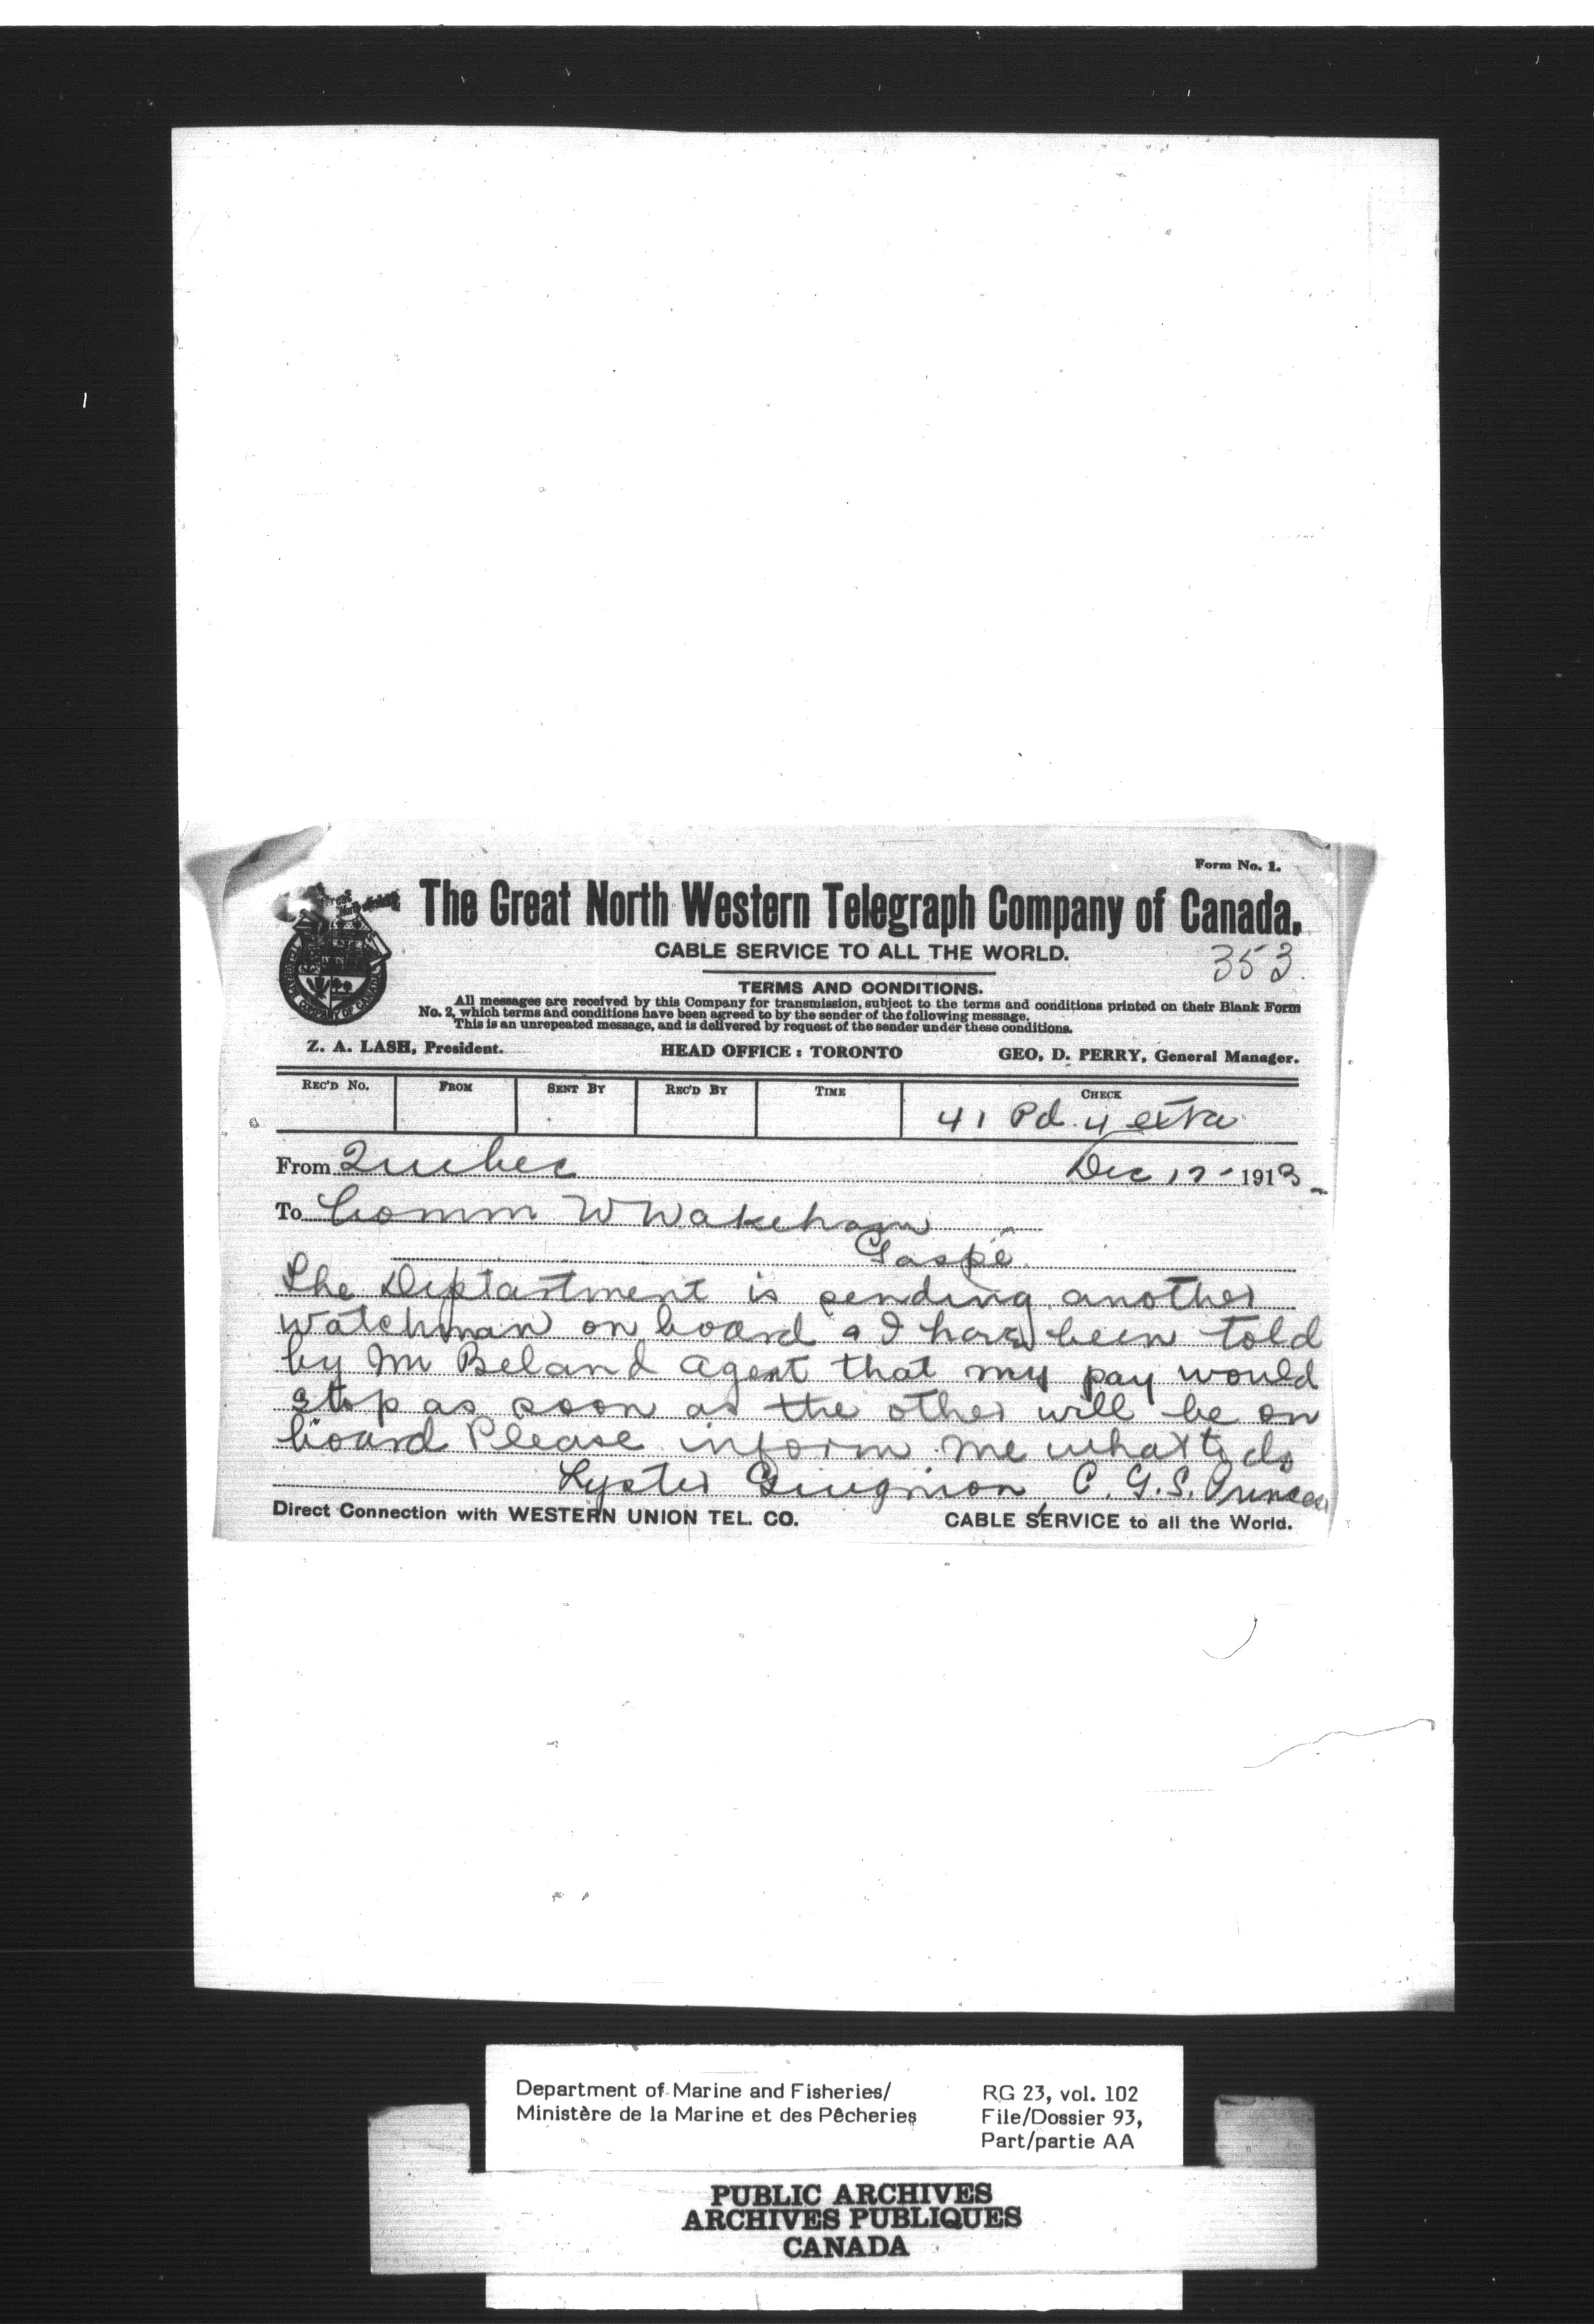 Form No. 1.
The Great North Western Telegraph Company of Canada.
CABLE SERVICE TO ALL THE WORLD.
353
TERMS AND CONDITIONS.
All messages are received by this Company for transmission, subject to the terms and conditions printed on their Blank Form
No. 2, which terms and conditions have been agreed to by the sender of the following message.
This is an unrepeated message, and is delivered by request of the sender under these conditions.
Z. A. LASH, President. HEAD OFFICE: TORONTO GEO. D. PERRY, General Manager.
REC'D NO. FROM SENT BY REC'D BY TIME CHECK
41 Pd. 4 extra
From Quebec Dec 17- 1913
To Comm W Wakeham
Gaspé
The Deptartment is sending another
watchman on board & I have been told
by Mr Beland Agent that my pay would
stop as soon as the other will be on
board Please inform me what to do
Lyster C. G. S. Princess
Direct Connection with WESTERN UNION TEL. CO. CABLE SERVICE to all the World.
Department of Marine and Fisheries/ RG 23, vol. 102
Ministère de la Marine et des Pêcheries File/Dossier 93,
Part/partie AA
PUBLIC ARCHIVES
ARCHIVES PUBLIQUES
CANADA